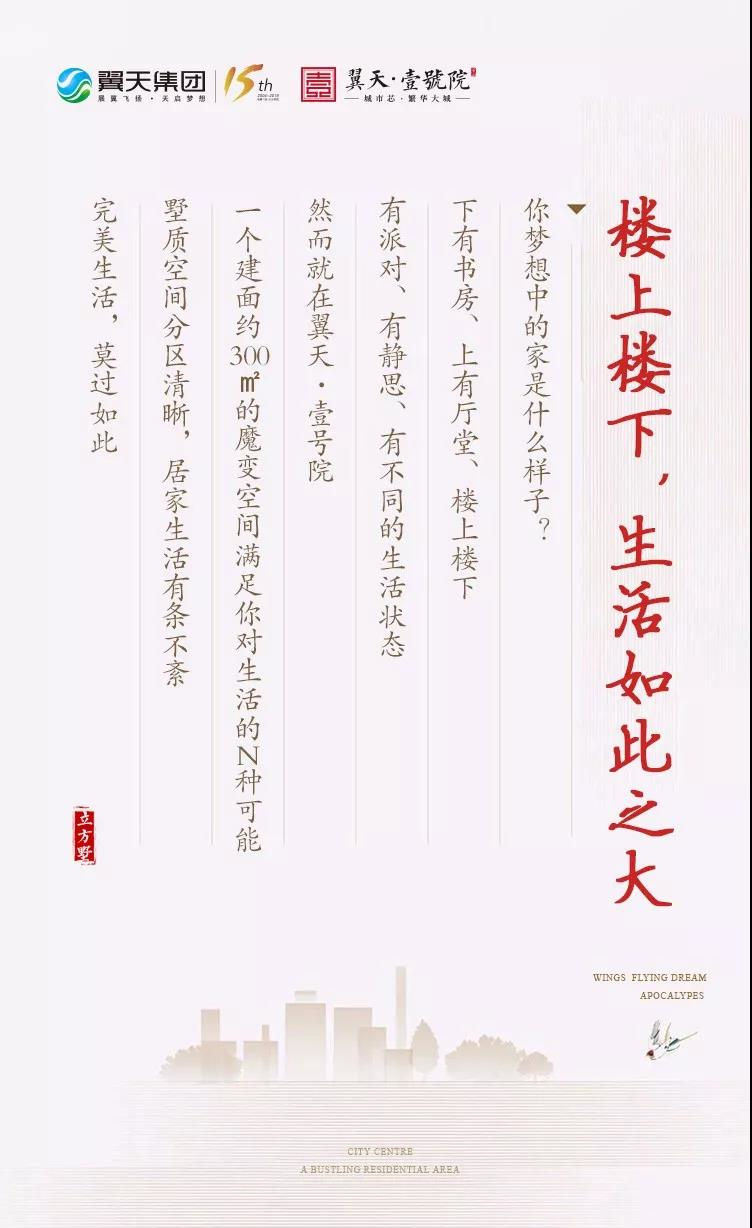 翼天集团
展翼飞扬·天启梦想
15th
翼天·壹號院
城市芯·繁华大城
楼上楼下，生活如此之大
你梦想中的家是什么样子？
下有书房、上有厅堂、楼上楼下
有派对、有静思、有不同的生活状态
然而就在翼天·壹号院
一个建面约300㎡的魔变空间满足你对生活的N种可能
墅质空间分区清晰，居家生活有条不紊
完美生活，莫过如此
立方墅
WINGS FLYING DREAM
APOCALYPES
CITY CENTRE
A BUSTLING RESIDENTIAL AREA